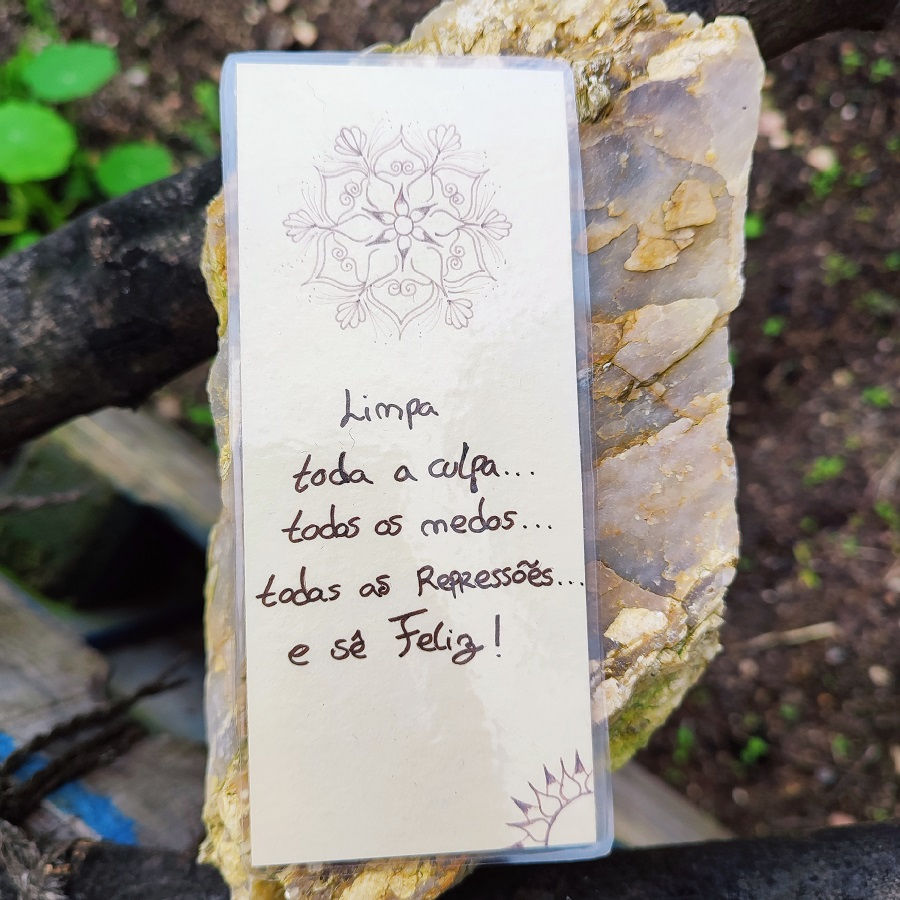 Limpa
toda a culpa...
todos os medos...
todas as Repressões...
e sê Feliz!